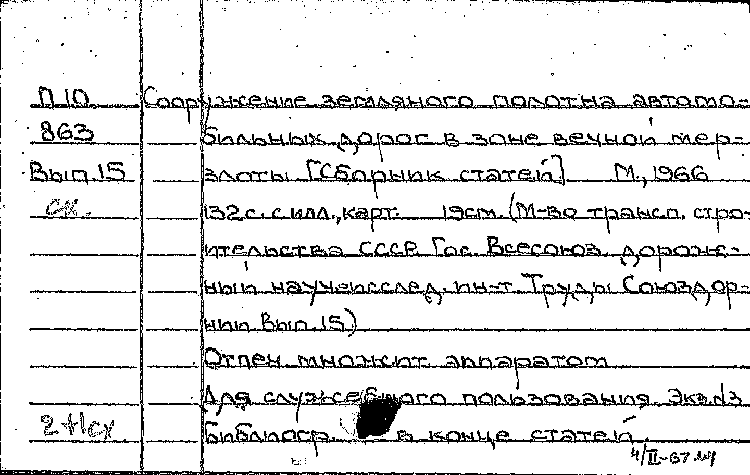 П10 Сооружение земляного полотна автомо=
863 бильных дорог в зоне вечной мер=
Вып.15 злоты [Сборник статей] М., 1966
ск. 132с. с илл., карт. 19см. (М-во трансп. стро-
ительства СССР. Гос. Всесоюз. дорож-
ный науч-исслед. ин-т. Труды Союздор-
нии Вып. 15)
Отпеч. множит. аппаратом
Для служебного пользования. Экз. №3
2+1ск Библиогр. в конце статей.
4/II-67